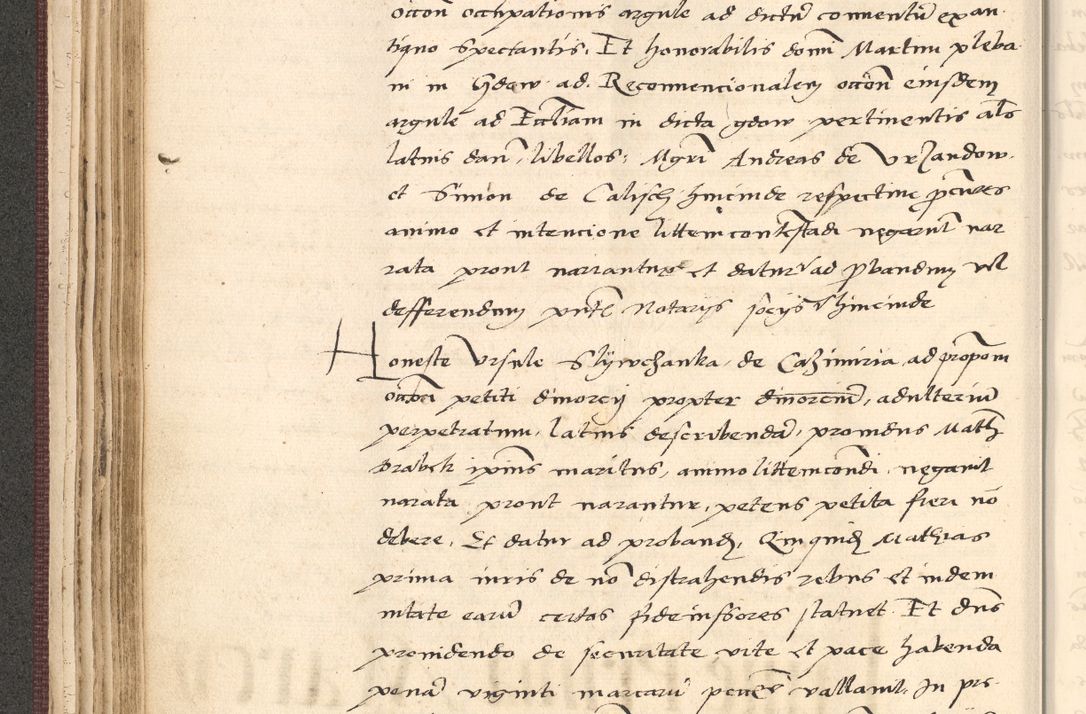 occōn occupationis argule ad dictū conuentū ex an-
tiquo spectantis. Et honorabilis domī Martini pleba-
ni in Gdow ad Reconuencionalem occōn eiusdem
argule ad Eccliam in dicta gdow pertinentis als
latius dan̄, libellos, Mgrī Andreas de Vrzandow.
et Simōn de Calisch hincinde respectiue ꝓcures
animo et intencione littem contestādi negarunt nar
rata prout narrantur et datur ad ꝓbandum vel
defferendum Notarijs hincinde
Honeste Vrsule Slywchanka, de Cazimiria, ad propom
petiti diuorcij propter diuorciū, adulteriū
perpetratum, latius describendā, prouidus Math
drabek ip̄ius maritus, animo littem condi, negauit
narata prout narantur, petens petita fieri nō
debere, Et datur ad proband, Quiquid Mathias
prima iuris de nō distrahendis rebus et indem
nitate earū certas fideiussores statuet. Et dn̄s
prouidendo de securitate vite et pace habenda
penā viginti marcarū vallauit. In pre-